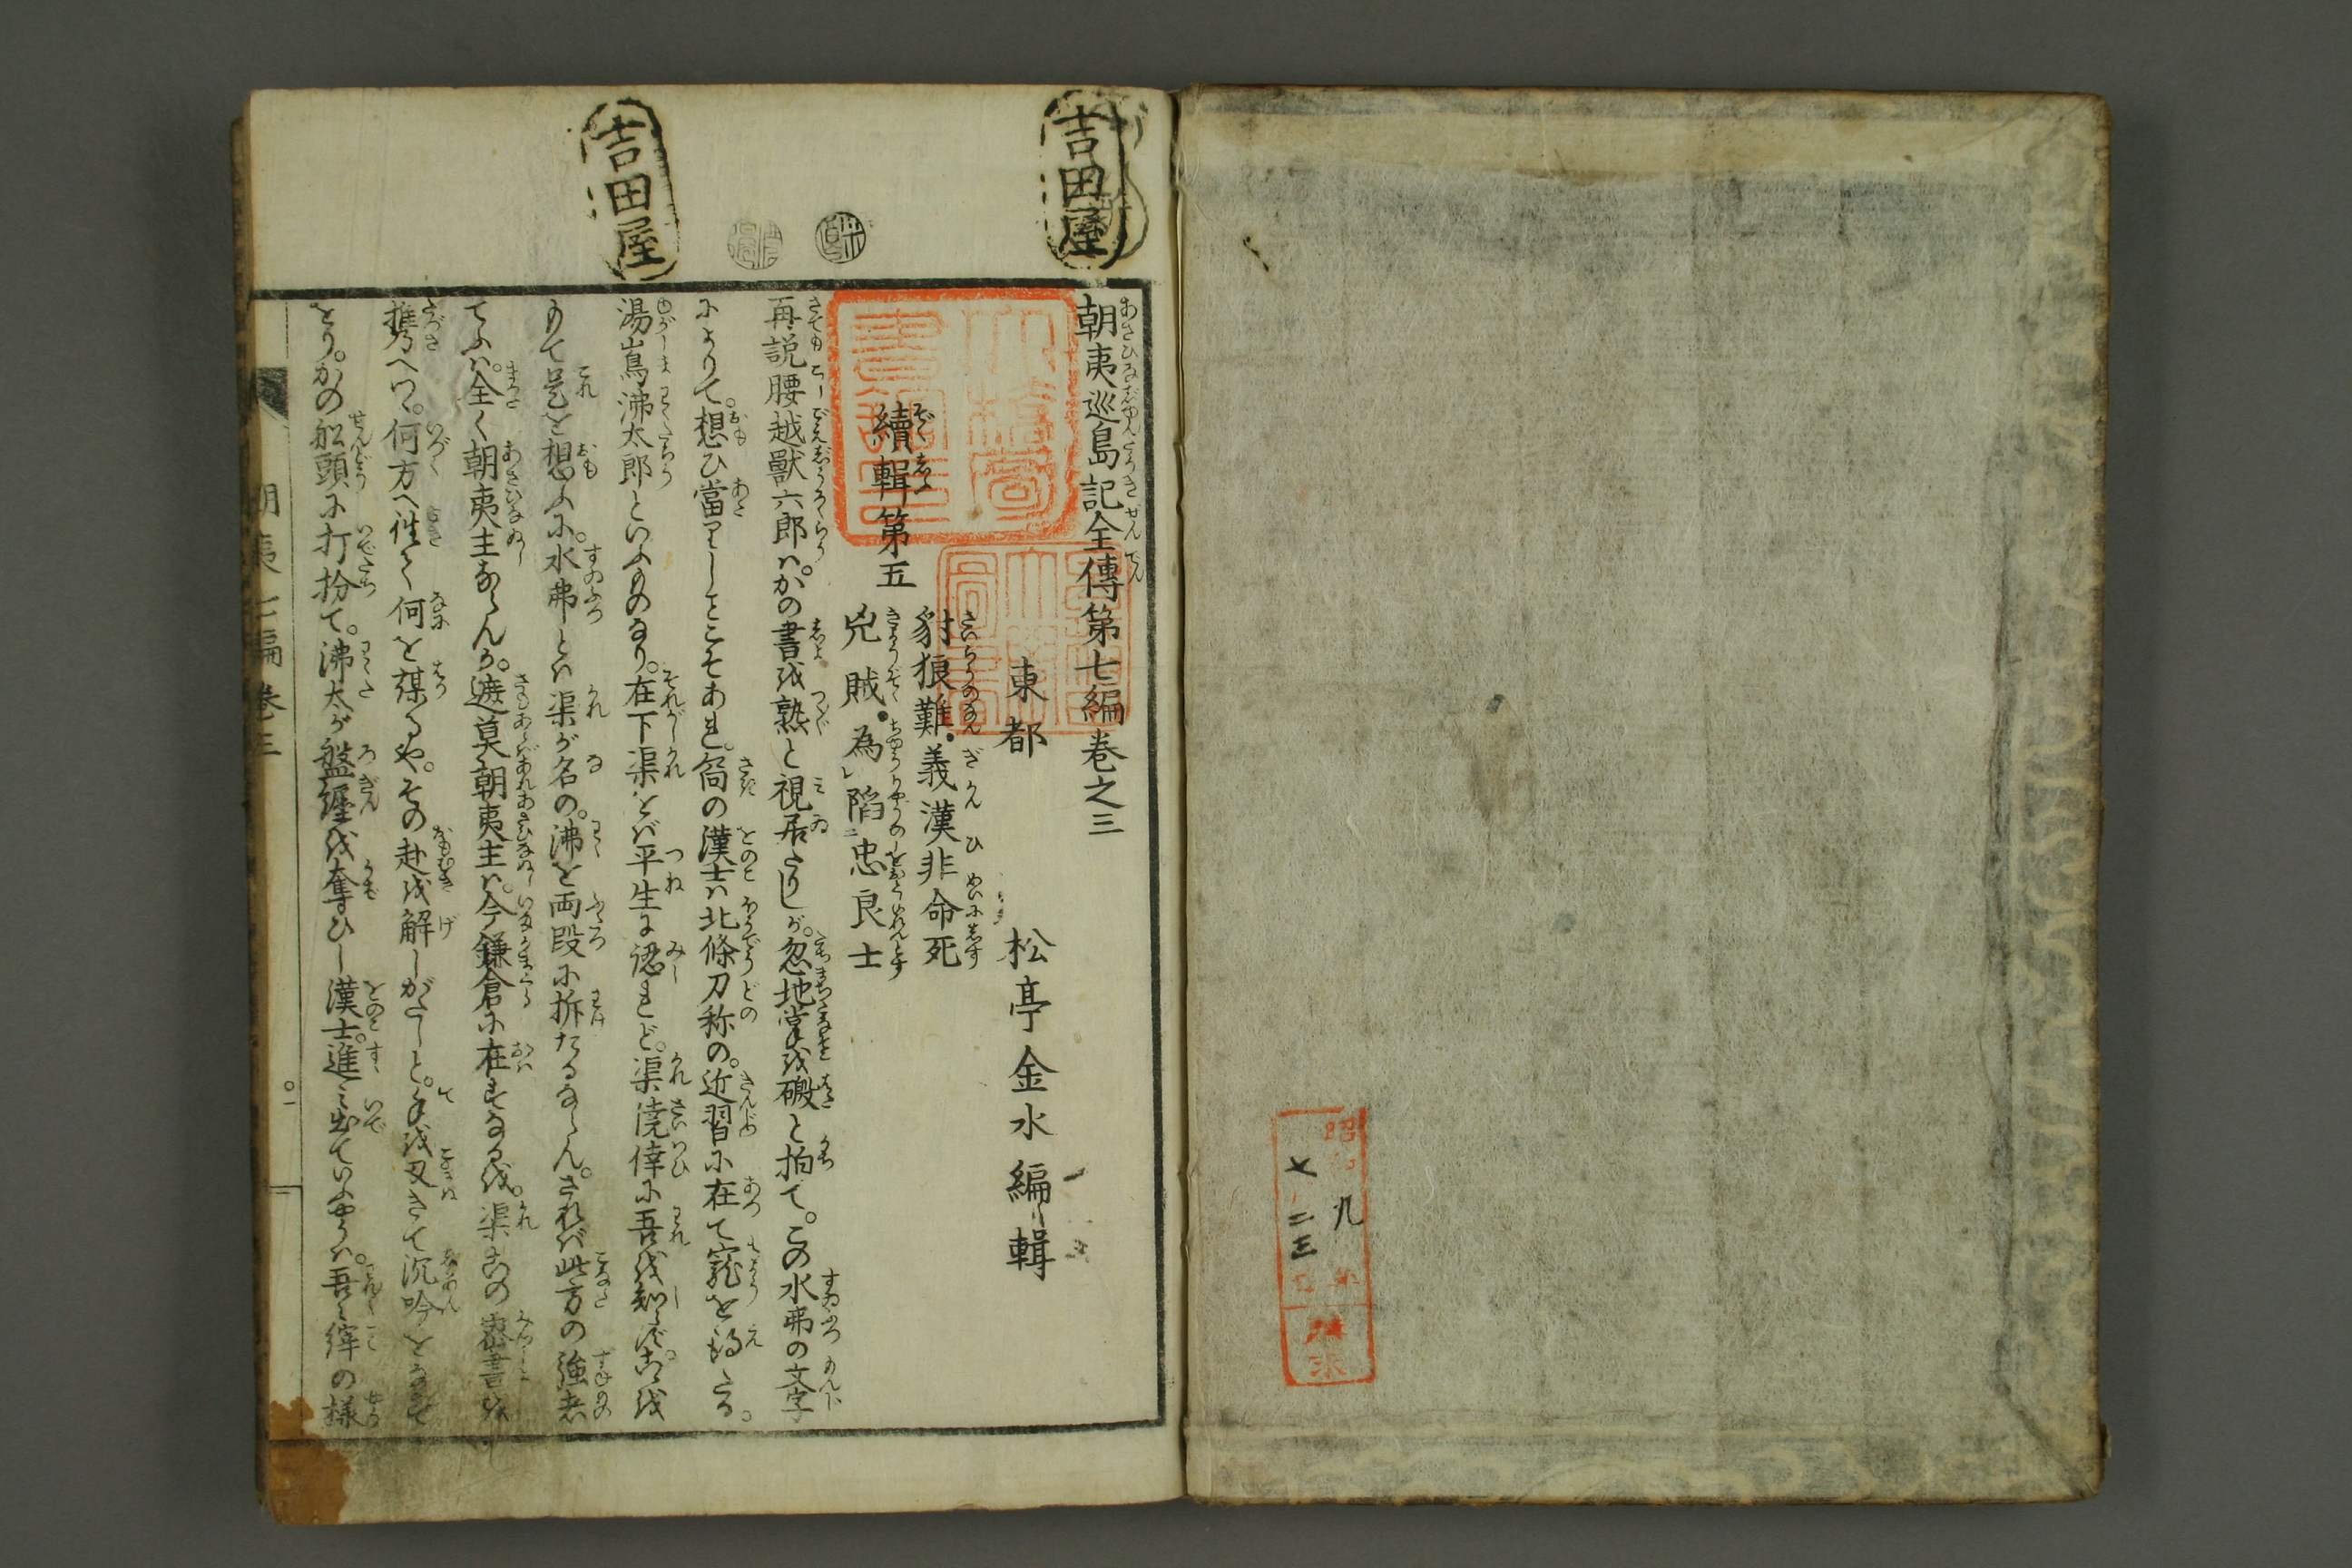 朝夷巡島記全傳第七編巻之三
東都 松亭金水編輯
續輯第五
豺狼難義漢非命死
兇賊為陥忠良士
再説腰越獸六郎ハ。かの書を熟と視居たりしが。忽地掌を礑と拍て。この水弗の文字
によりて。想ひ當りしことこそあれ。
の漢士ハ北條刀称の。近習に在て寵を得たる。
湯嶌沸太郎といふものなり。在下渠をバ平生に認れど。渠僥倖に吾を知らず。
もて是を想ふに。水弗とハ渠が名の。沸を両段に拆たるならん。されバ此方の強者
てふハ。全く朝夷主ならんか。遮莫朝夷主ハ。今鎌倉に在するを。渠
の密書を
携へつ。何方へ往て何を謀るや。その赴を解しがたしと。手を叉きて沈吟
とり。かの舩頭に打扮て。沸太が盤纏を奪ひし漢士。進み出ていふやう。吾
の様
吉田屋
吉田屋
朝夷七編巻三